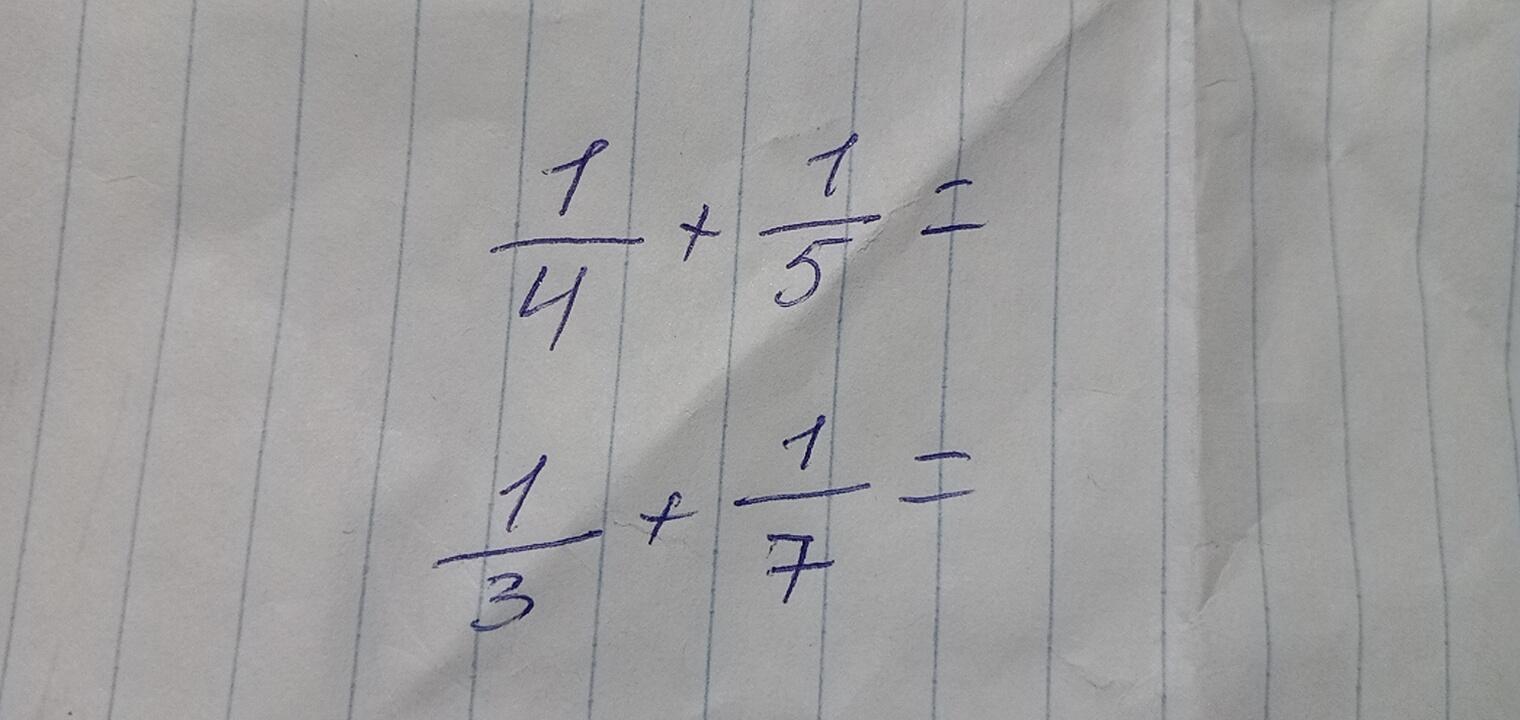 1/4 + 1/5 =
1/3 + 1/7 =